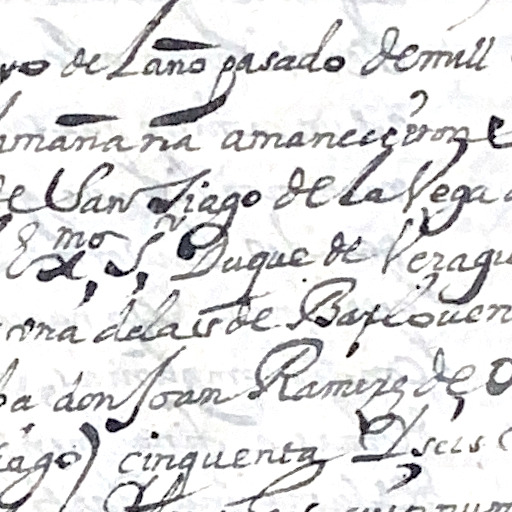 de Laño pasado de mill
mañana amanecieron
de San Tiago de la Vega
Exmo Sr Duque de Veragu
una de las de Barlouen
don Joan Ramires de
iago) cinquenta Y seis